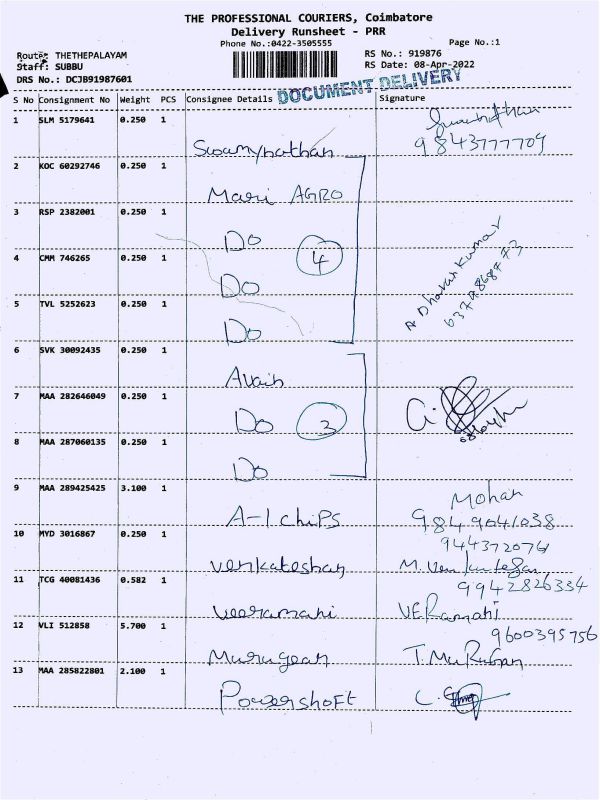 THE PROFESSIONAL COURIERS, Coimbatore
Delivery Runsheet - PRR
Phone No.:0422-3505555
Page No.:1
Route: THETHEPALAYAM
Staff: SUBBU
DRS No.: DCJB91987601
RS No.: 919876
RS Date: 08-Apr-2022
DOCUMENT DELIVERY
S No Consignment No Weight PCS Consignee Details Signature
1 SLM 5179641 0.250 1
Swamynathan 9843777709
2 KOC 60292746 0.250 1
Mari AGRO
3 RSP 2382001 0.250 1
Do
4 CMM 746265 0.250 1
Do 4
A Dharan Kumar
5 TVL 5252623 0.250 1
Do
6 SVK 30092435 0.250 1
7 MAA 282646049 0.250 1
Do 3
8 MAA 287060135 0.250 1
Do
9 MAA 289425425 3.100 1
Mohan
A-1 chiPS 9849041038
10 MYD 3016867 0.250 1
944372076
venkateshan M. Venkatesan
11 TCG 40081436 0.582 1
9942826334
veeramani VERamani
12 VLI 512858 5.700 1
9600395756
Murugean T. MuRugan
13 MAA 285822801 2.100 1
Powershoft